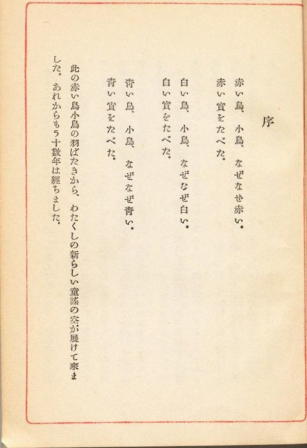 序
赤い鳥、小鳥、なぜなぜ赤い。
赤い實をたべた。
白い鳥、小鳥、なぜなぜ白い。
白い實をたべた。
青い鳥、小鳥、なぜなぜ青い。
青い實をたべた。
此の赤い鳥小鳥の羽ばたきから、わたくしの新らしい童謠の空が展けて來ま
した。あれからもう十數年は經ちました。